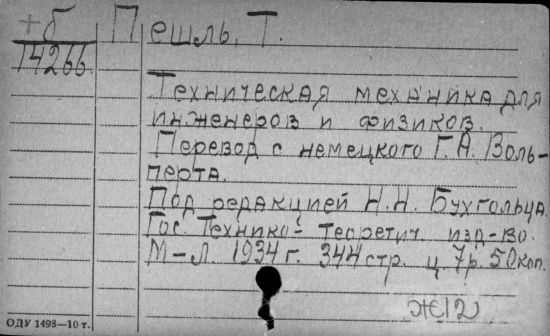 +б
14266
Пешль, Т.
Техническая механика для
инженеров и физиков.
Перевод с немецкого Г. А. Воль-
перта.
Под редакцией Н. Н. Бухгольца.
Гос. Технико-Теоретич. изд-во.
М-Л. 1934 г. 344 стр. ц 7р. 50 коп.
Ж12
ОДУ 1498—10 т.